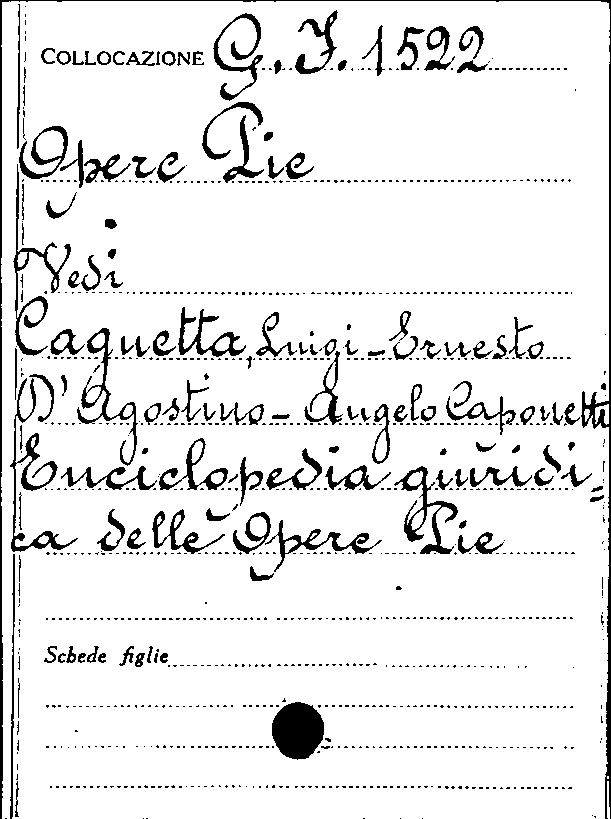 COLLOCAZIONE G. I. 1522
Opere Pie
Vedi
Caguetta, Luigi - Ernesto
D'Agostino - Angelo Caponetti
Enciclopedia giuridi=
ca delle Opere Pie
Schede figlie